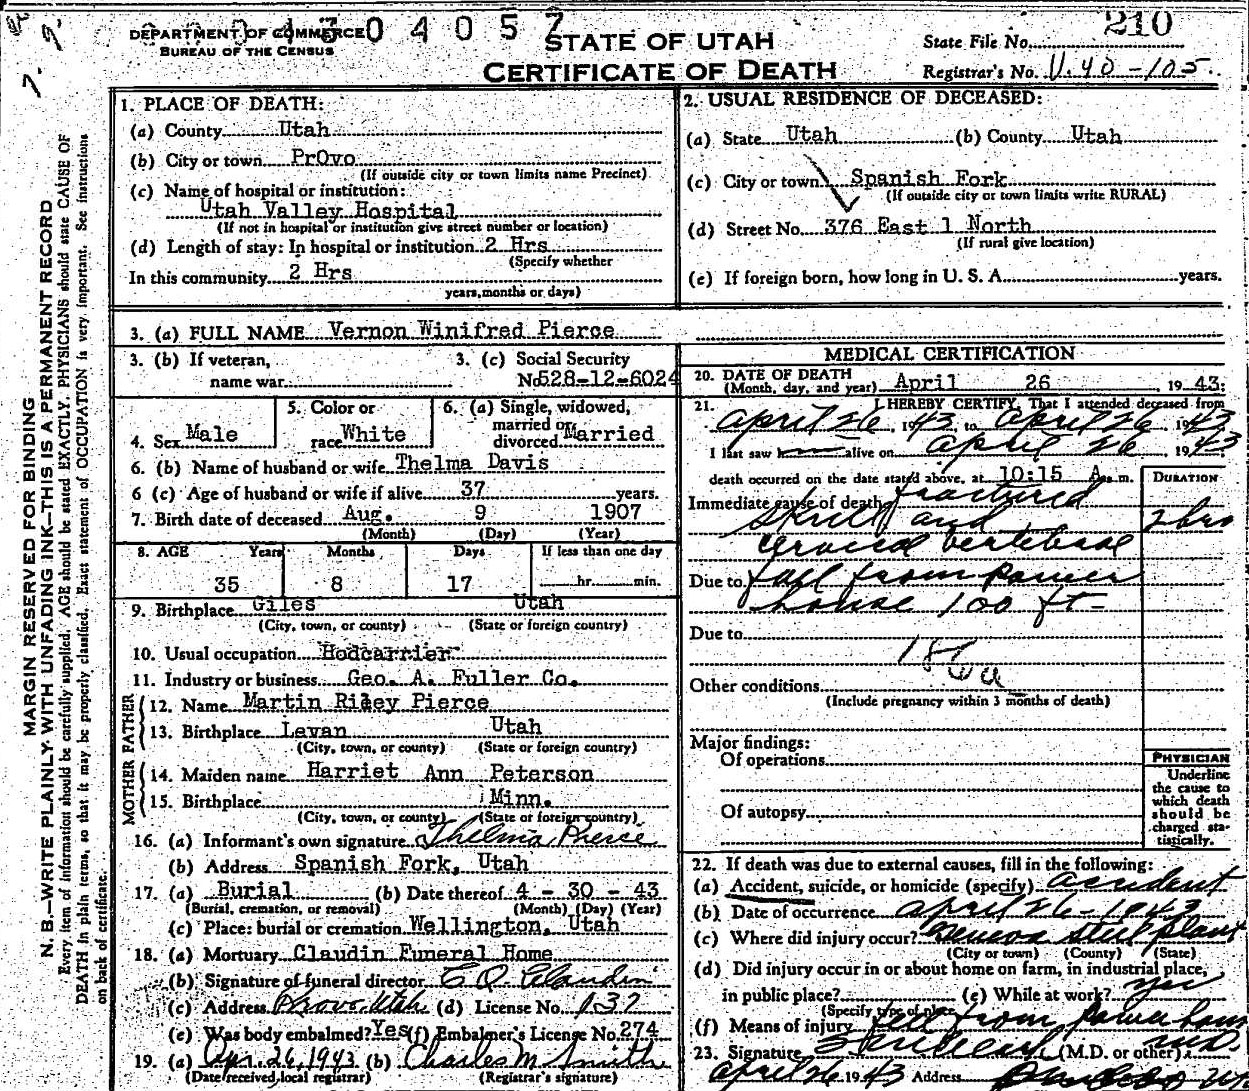 DEPARTMENT OF COMMERCE
BUREAU OF THE CENSUS
04057
STATE OF UTAH
CERTIFICATE OF DEATH
210
State File No.
Registrar's No. U.40-105
MARGIN RESERVED FOR BINDING
N. B.—WRITE PLAINLY WITH UNFADING INK—THIS IS A PERMANENT RECORD
Every item of information should be carefully supplied. AGE should be stated EXACTLY. PHYSICIANS should state CAUSE OF
DEATH in plain terms, so that it may be properly classified. Exact statement of OCCUPATION is very important. See instructions
on back of certificate.
1. PLACE OF DEATH:
(a) County Utah
(b) City or town PrOvo
(If outside city or town limits name Precinct)
(c) Name of hospital or institution:
Utah Valley Hospital
(If not in hospital or institution give street number or location)
(d) Length of stay: In hospital or institution 2 Hrs
(Specify whether
In this community 2 Hrs
years, months or days)
2. USUAL RESIDENCE OF DECEASED:
(a) State Utah (b) County Utah
(c) City or town Spanish Fork
(If outside city or town limits write RURAL)
(d) Street No. 376 East 1 North
(If rural give location)
(e) If foreign born, how long in U. S. A. years.
3. (a) FULL NAME Vernon Winifred Pierce
3. (b) If veteran, name war
3. (c) Social Security No. 528-12-6024
4. Sex Male
5. Color or race White
6. (a) Single, widowed, married or divorced Married
6. (b) Name of husband or wife Thelma Davis
6 (c) Age of husband or wife if alive 37 years.
7. Birth date of deceased Aug. 9 1907
(Month) (Day) (Year)
8. AGE Years Months Days If less than one day
35 8 17 hr. min.
9. Birthplace Giles Utah
(City, town, or county) (State or foreign country)
10. Usual occupation Hodcarrier
11. Industry or business Geo. A. Fuller Co.
FATHER
12. Name Martin Riley Pierce
13. Birthplace Levan Utah
(City, town, or county) (State or foreign country)
MOTHER
14. Maiden name Harriet Ann Peterson
15. Birthplace Minn.
(City, town, or county) (State or foreign country)
16. (a) Informant's own signature Thelma Pierce
(b) Address Spanish Fork, Utah
17. (a) Burial (b) Date thereof 4 - 30 - 43
(Burial, cremation, or removal) (Month) (Day) (Year)
(c) Place: burial or cremation Wellington, Utah
18. (a) Mortuary Claudin Funeral Home
(b) Signature of funeral director C.O. Claudin
(c) Address Provo, Utah (d) License No. 137
(e) Was body embalmed? Yes (f) Embalmer's License No. 274
19. (a) Apr. 26, 1943 (b) Charles M. Smith
(Date received local registrar) (Registrar's signature)
MEDICAL CERTIFICATION
20. DATE OF DEATH
(Month, day, and year) April 26, 1943:
21. I HEREBY CERTIFY, That I attended deceased from
April 26, 1943, to April 26, 1943
I last saw h alive on April 26, 1943
death occurred on the date stated above, at 10:15 A. m.
DURATION
Immediate cause of death fractured
skull and 2 hrs
cervical vertebrae
Due to fall from power
house 100 ft-
Due to
Other conditions
(Include pregnancy within 3 months of death)
Major findings:
Of operations
Of autopsy
PHYSICIAN
Underline
the cause to
which death
should be
charged sta-
tistically.
22. If death was due to external causes, fill in the following:
(a) Accident, suicide, or homicide (specify) accident
(b) Date of occurrence April 26-1943
(c) Where did injury occur? Geneva steel plant
(City or town) (County) (State)
(d) Did injury occur in or about home on farm, in industrial place,
in public place? (e) While at work? yes
(Specify type of place)
(f) Means of injury fell from power house
23. Signature (M.D. or other) M.D.
April 26 1943 Address